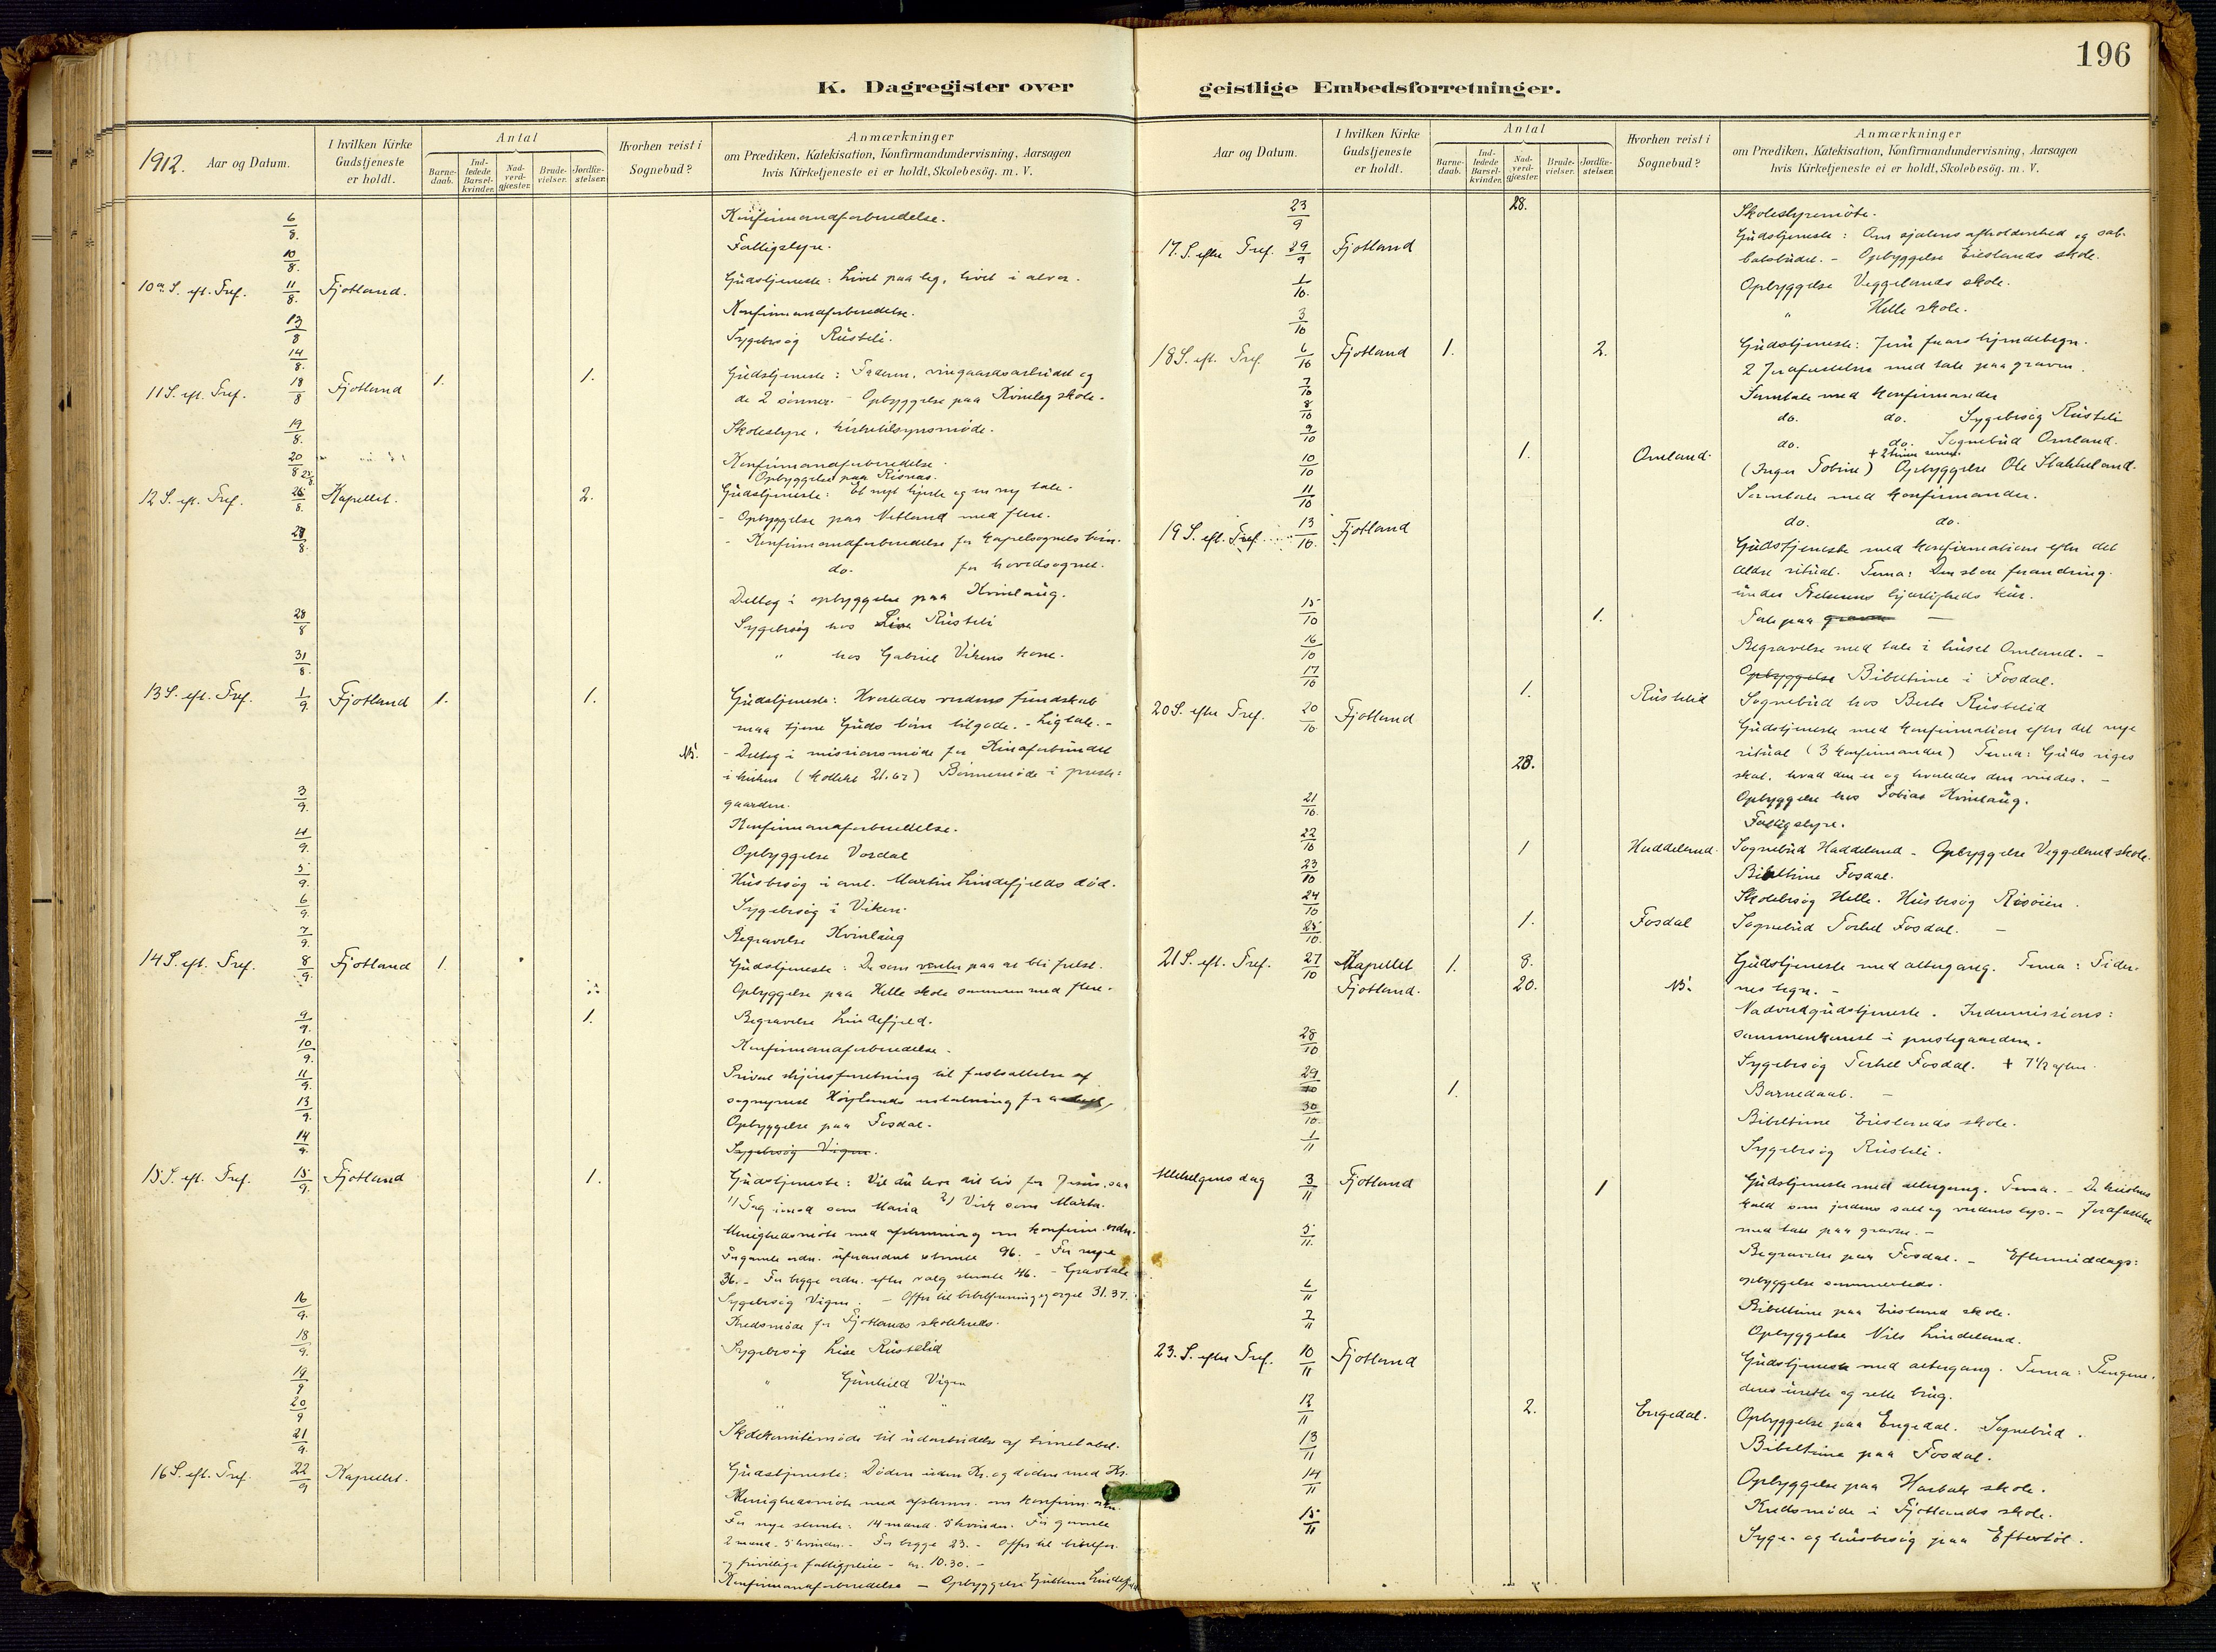 196
K. Dagregister over geistlige Embedsforretninger.
1912. Aar og Datum.
I hvilken Kirke Gudstjeneste er holdt.
Antal
Barnedaab.
Indledede Barselkvinder.
Nadverdgjæster.
Brudevielser.
Jordfæstelser.
Hvorhen reist i Sognebud?
Anmærkninger
om Prædiken, Katekisation, Konfirmandundervisning, Aarsagen
hvis Kirketjeneste ei er holdt, Skolebesøg. m. V.
6/8. Konfirmandforberedelse.
10/8. Fattigstyre.
10de S. eft. Tref. 11/8. Fjotland. Gudstjeneste: Livet paa leg, livet i alvor.
13/8 Konfirmandforberedelse.
14/8. Sygebesøg Rüsteli.
11 S. eft. Tref. 18/8 Fjotland 1. 1. Gudstjeneste: Faderen, vingaardsarbeidet og
de 2 sønner. - Opbyggelse paa Kvinlog skole.
19/8. Skolestyre, kirketilsynsmøde.
20/8 Konfirmandforberedelse.
Opbyggelse paa Risnæs.
12 S. eft. Tref. 25/8. Kapellet. 2. Gudstjeneste: Et nyt hjerte og en ny tale.
- Opbyggelse paa Netland med flere.
27/8. - Konfirmandforberedelse for kapelsognets børn.
do. for hovedsognet.
Deltog i opbyggelse paa Kvinlaug.
28/8 Sygebesøg hos Lise Rüsteli
31/8. " hos Gabriel Vikens kone.
13 S. eft. Tref. 1/9. Fjotland 1. 1. Gudstjeneste: Hvorledes verdens fiendskab
maa tjene Guds børn tilgode. - Ligtale. -
NB. - Deltog i missionsmøde for Kinaforbundet
i kirken (kollekt 21.62) Bønnemøde i preste-
gaarden.
3/9. Konfirmandforberedelse.
4/9. Opbyggelse Vordal
5/9. Husbesøg i anl. Martin Lindefjelds død.
6/9. Sygebesøg i Viken.
7/9. Begravelse Kvinlaug
14 S. eft. Tref. 8/9. Fjotland 1. Gudstjeneste: De som venter paa at bli frelst.
Opbyggelse paa Helle skole sammen med flere.
9/9. 1. Begravelse Lindefjeld.
10/9. Konfirmandforberedelse.
11/9. Privat skjønsforretning til fastsættelse af
sogneprest Høylands uttalelning for
13/9. Opbyggelse paa Fosdal.
14/9. Sygebesøg Vigen.
15 S. eft. Tref. 15/9. Fjotland 1. Gudstjeneste: Vil du leve dit liv for Jesus, saa
1) Tag imod som Maria 2) Virk som Marta.
Menighedsmøte med afstemning om konfirm. ordn.
For gamle ordn. uforandret stemte 96. - For nye
36. - For begge ordn. efter valg stemte 46. - Gravtale
Sygebesøg Vigen. - Offer til bibelforening og orgel 31.37.
16/9. Kredsmøde for Fjotlands skolekreds.
18/9. Sygebesøg Lise Rüstelid
19/9 " Gunhild Vigen
20/9 " " "
21/9. Skolekomitémøde til udarbeidelse af timetabel.
16 S. eft. Tref. 22/9 Kapellet. Gudstjeneste: Døden uden Kr. og døden med Kr.
Menighedsmøte med afstemn. om konfirm. ordn.
For nye stemte: 14 mænd. 5 kvinder. For gamle
2 mænd. 5 kvinder. - For begge 23. - Offer til bibelfor.
og frivillige fattigpleie - kr. 10.30. -
Konfirmandforberedelse - Opbyggelse Lindefjeld
Aar og Datum.
I hvilken Kirke Gudstjeneste er holdt.
Antal
Barnedaab.
Indledede Barselkvinder.
Nadverdgjæster.
Brudevielser.
Jordfæstelser.
Hvorhen reist i Sognebud?
Anmærkninger
om Prædiken, Katekisation, Konfirmandundervisning, Aarsagen
hvis Kirketjeneste ei er holdt, Skolebesøg. m. V.
23/9 28. Skolestyremøte.
17. S. efter Tref. 29/9 Fjotland Gudstjeneste: Om sjælens afholdenhed og sab-
batsbudet. - Opbyggelse Eieslands skole.
1/10. Opbyggelse Veggelands skole.
3/10 " Helle skole.
18 S. eft. Tref 6/10 Fjotland 1. 2. Gudstjeneste: Jesu faars kjendetegn.
2 Jordfæstelser med tale paa graven.
7/10 Samtale med konfirmander
8/10 do. do. Sygebesøg Rüsteli
9/10 do. do. Sognebud Omland.
10/10 1. Omland. (Inger Tobine) + 2 timer senere. Opbyggelse Ole Stakkeland.
11/10 Samtale med konfirmander.
do. do.
19 S. eft. Tref. 13/10. Fjotland Gudstjeneste med konfirmation efter det
ældre ritual. Tema: Den store forandring
under Frelserens kjærligheds kur.
15/10 1. Tale paa graven -
16/10 Begravelse med tale i huset Omland. -
17/10 Opbyggelse Bibeltime i Fosdal.
1. Rüstelid Sognebud hos Berte Rüstelid
20 S. efter Tref. 20/10. Fjotland Gudstjeneste med konfirmation efter det nye
ritual (3 konfirmander) Tema: Guds riges
28. skat, hvad den er og hvorledes den vindes. -
21/10. Opbyggelse hos Tobias Kvinlaug.
Fattigstyre.
22/10 1 Haddeland. Sognebud Haddeland - Opbyggelse Veggeland skole.
23/10 Bibeltime Fosdal.
24/10 Skolebesøg Helle. Husbesøg Risøien.
25/10. 1. Fosdal Sognebud Torkel Fosdal. -
21 S. eft. Tref. 27/10 Kapellet 1. 8. Gudstjeneste med altergang. Tema: Tider-
Fjotland. 20. NB. nes tegn. -
Nadverdgudstjeneste. Indremissions-
28/10 sammenkomst i prestegaarden.
Sygebesøg Torkel Fosdal. + 7 1/2 aften.
29/10 1. Barnedaab. -
30/10. Bibeltime Eieslands skole.
1/11 Sygebesøg Rüsteli.
Allehelgensdag 3/11 Fjotland 1 Gudstjeneste med altergang. Tema. - De kristnes
kald som jordens salt og verdens lys. - Jordfæstelse
med tale paa graven. -
5/11. Begravelse paa Fosdal. - Eftermiddags-
opbyggelse sammesteds.
6/11 Bibeltime paa Eiesland skole.
7/11 Opbyggelse Nils Lindeland.
23. S. efter Tref. 10/11 Fjotland Gudstjeneste med altergang. Tema: Pengene,
deres urette og rette brug.
12/11 2. Engedal. Opbyggelse paa Engedal. Sognebud.
13/11 Bibeltime paa Fosdal.
14/11 Opbyggelse paa skole.
Kredsmøde i Fjotlands skole.
15/11 Syge- og husbesøg paa Eftestøl.